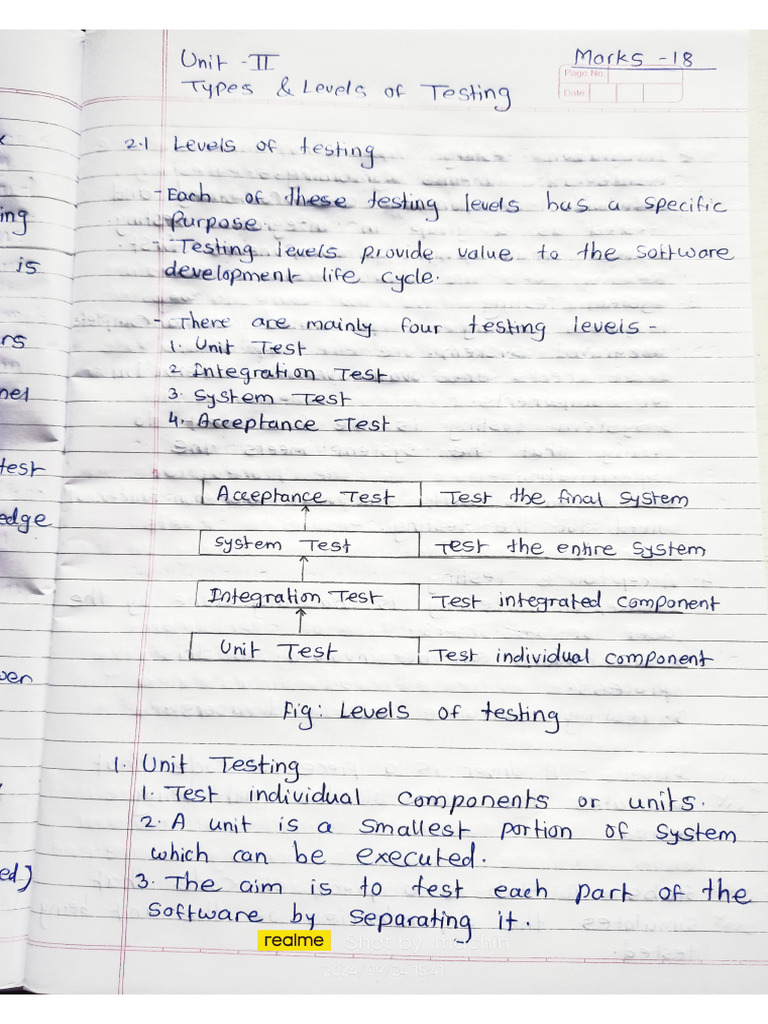 Unit - II
Marks - 18
Page No.
Date
Types & Levels of Testing
2.1 Levels of testing
- Each of these testing levels has a specific
purpose.
- Testing levels provide value to the software
development life cycle.
- There are mainly four testing levels -
1. Unit Test
2. Integration Test
3. System Test
4. Acceptance Test
Acceptance Test Test the final system
System Test Test the entire system
Integration Test Test integrated component
Unit Test Test individual component
fig: Levels of testing
1. Unit Testing
1. Test individual components or units.
2. A unit is a smallest portion of system
which can be executed.
3. The aim is to test each part of the
software by separating it.
ing
is
rs
test
edge
ven
ed)
realme Shot by
2024/09/24 15:41